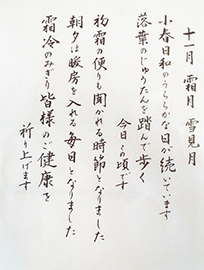 十一月 霜月 雪見月
小春日和のうららかな日が続いています
落葉のじゅうたんを踏んで歩く
今日この頃です
初霜の便りも聞かれる時節となりました
朝夕は暖房を入れる毎日となりました
霜冷のみぎり皆様のご健康を
祈り上げます